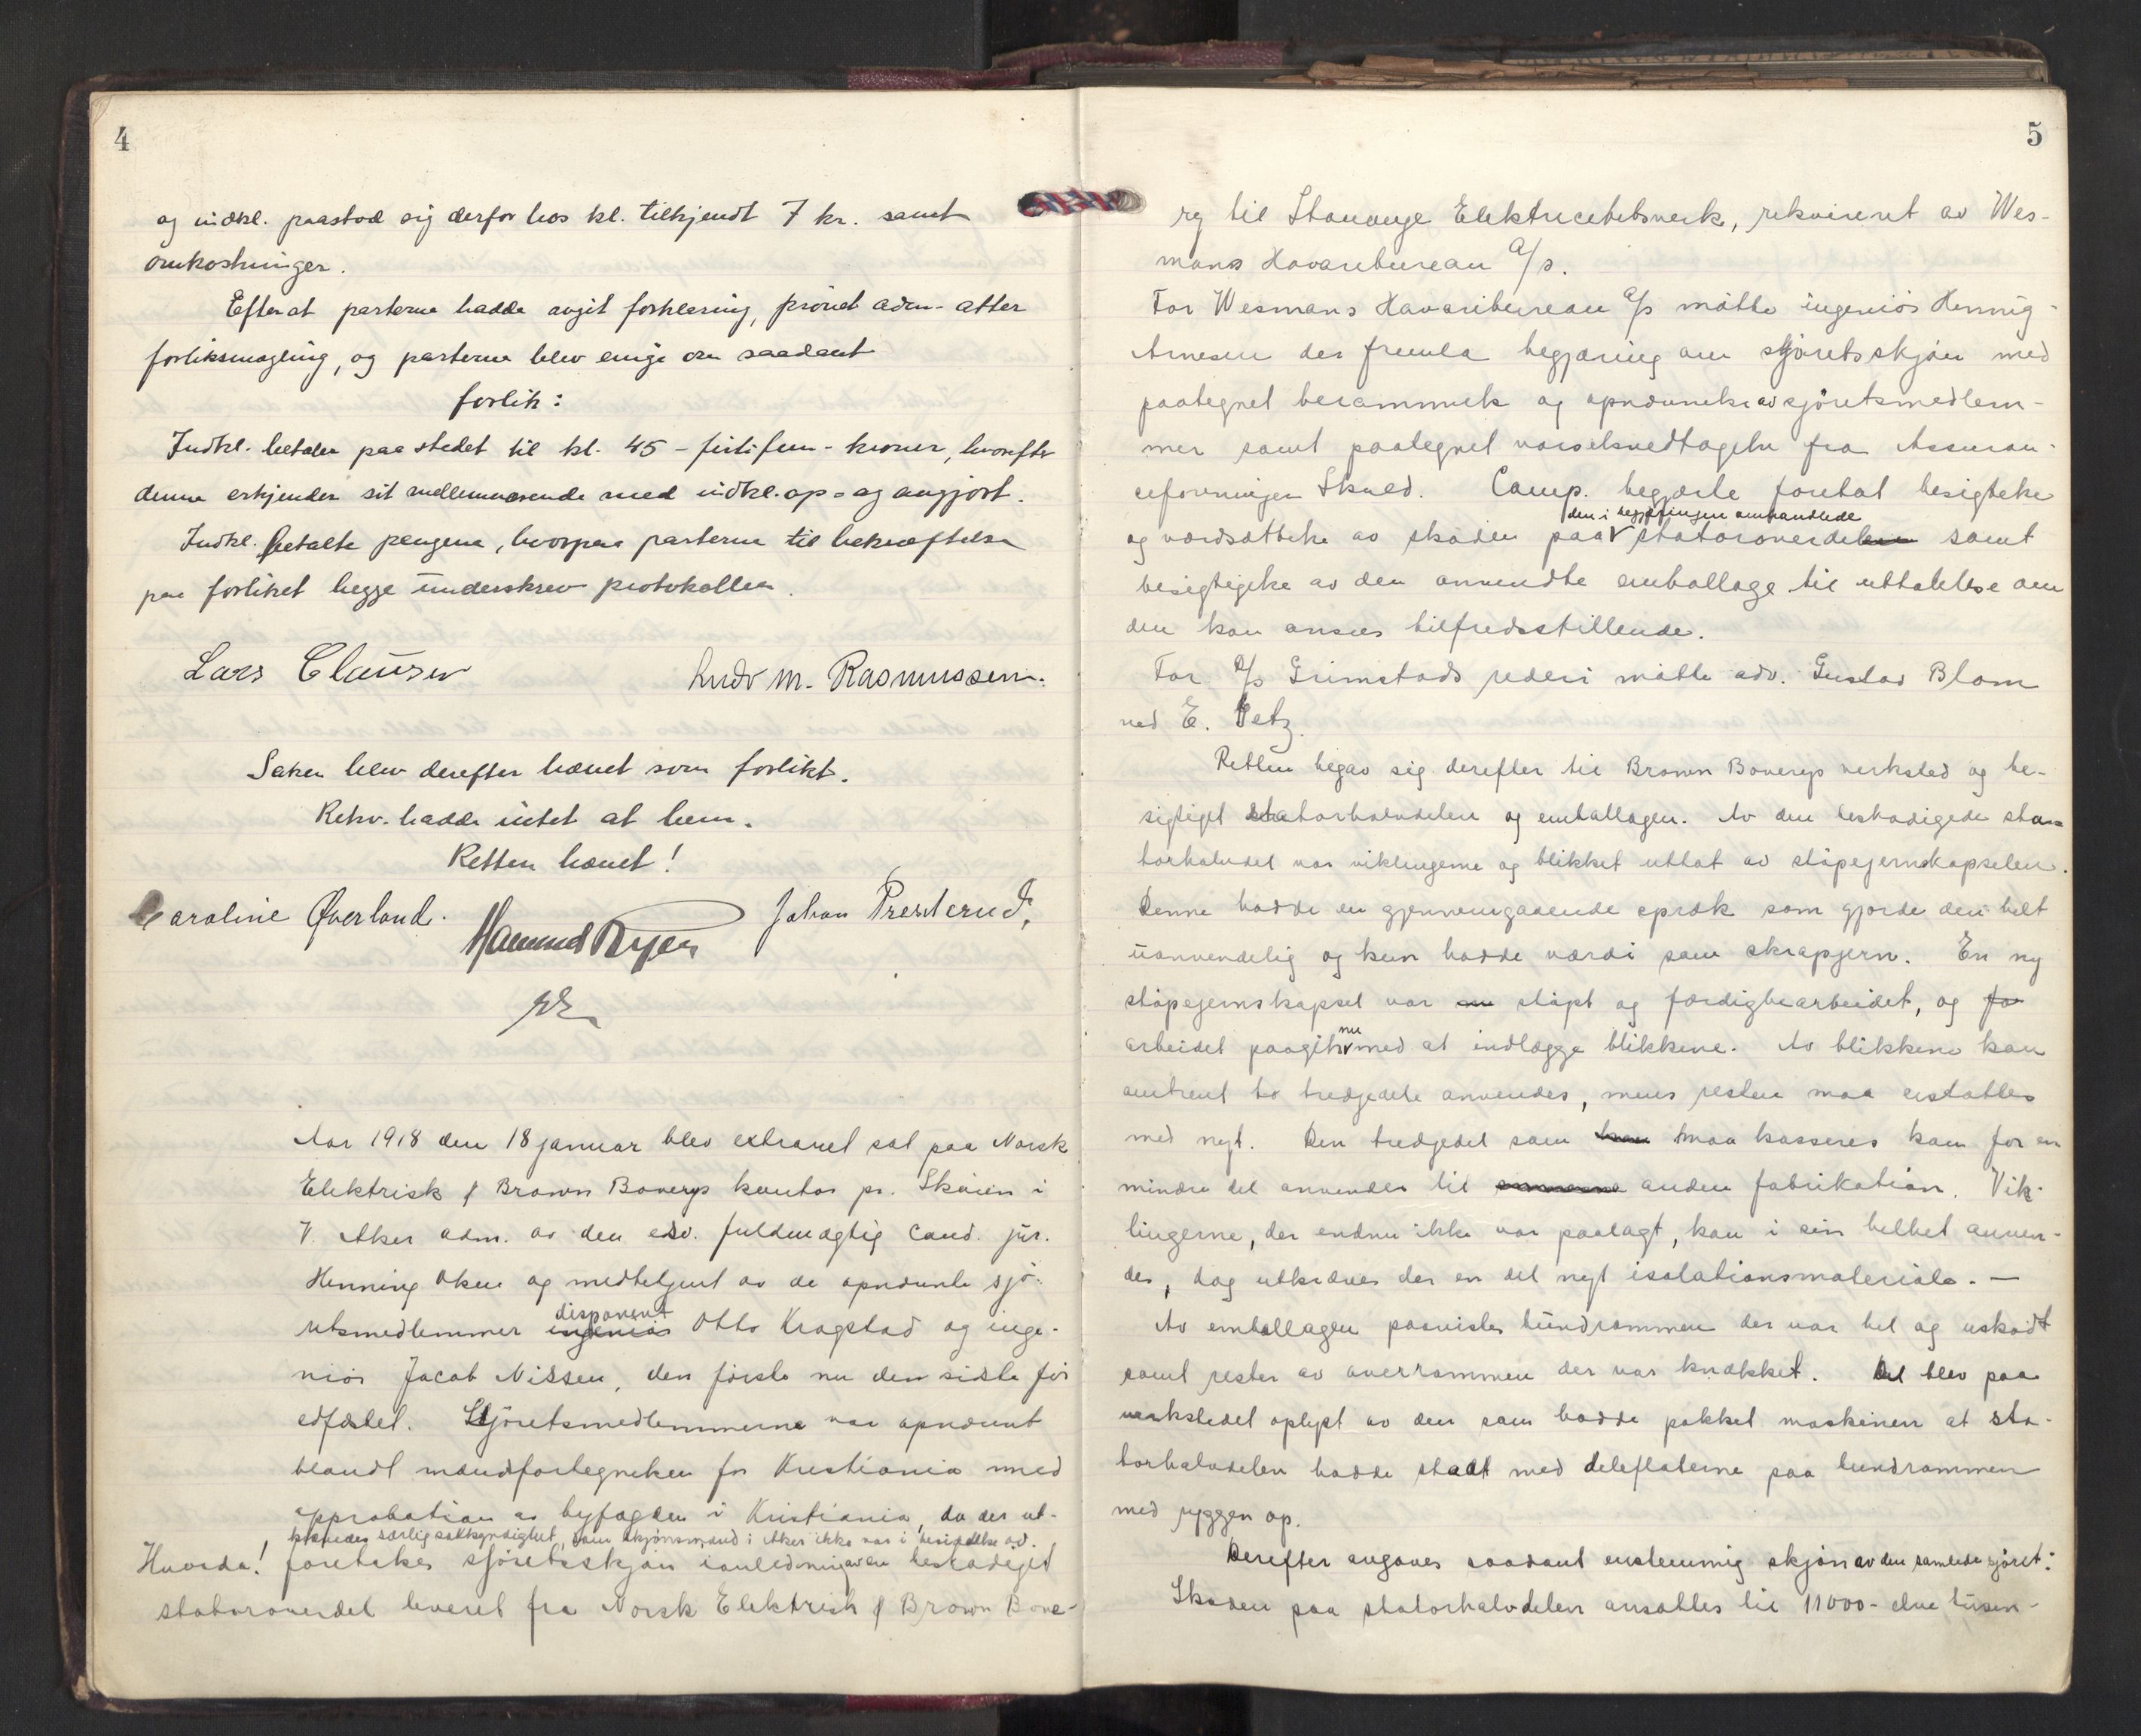 4
og indkl. paastod sig derfor hos kl. tilkjendt 7 kr. samt
omkostninger.
Efterat parterne hadde avgit forklaring, prövet adm. atter
forliksmegling, og parterne blev enige om saadant
forlik:
Indkl. betaler paa stedet til kl. 45 - firtifem - kroner, hvorefter
denne erkjender sit mellemværende med indkl. op- og avgjort.
Indkl. betalte pengene, hvorpaa parterne til bekræftelse
paa forliket begge underskrev protokollen.
Lars Clausen Ludv M. Rasmussen.
Saken blev derefter hævet som forlikt.
Rekv. hadde intet at bem.
Retten hævet!
Caroline Øverland. Johan Presterud,
Aar 1918 den 18 januar blev extraret sat paa Norsk
Elektrisk & Brown Boverys kontor pr. Sköien i
V. Aker adm. av den edsv. fuldmægtig cand. jur.
Henning Oken og medbetjent av de opnævnte sjö-
disponent
retsmedlemmer ingeniör Otto Kragstad og inge-
niör Jacob Nissen, den förste nu den sidste för
edfæstet. Sjöretsmedlemmerne var opnævnt
blandt mandsfortegnelsen for Kristiania med
approbation av byfogden i Kristiania, da der ut-
krævedes særlig sakkyndighet, som skjönsmænd i Aker ikke var i besiddelse av.
Hvorda! foretokes sjöretsskjön i anledning av en beskadiget
statoroverdel leveret fra Norsk Elektrisk & Brown Bove-
5
ry til Stavanger Elektricitetsverk, rekvireret av Wes-
mans Havaribureau A/S.
For Wesmans Havaribureau A/S mötte ingeniör Hennig-
Arnesen der fremla begjæring om sjöretsskjön med
paategnet berammelse og opnævnelse av sjöretsmedlem-
mer samt paategnet varselsvedtagelse fra Assuran-
ceforeningen Skuld. Comp. begjærte foretat besigtelse
den i begjæringen omhandlede
og værdsættelse av skaden paa statoroverdelen samt
besigtigelse av den anvendte emballage til uttalelse om
den kan ansees tilfredsstillende.
For A/S Grimstads rederi mötte adv. Gustav Blom
ved E. Vetz.
Retten begav sig derefter til Brown Boverys verksted og be-
sigtiget statorhalvdelen og emballagen. Av den beskadigede sta-
torhalvdel var viklingerne og blikket uttat av stöpejernskapselen.
Denne hadde en gjennemgaaende spræk som gjorde den helt
uanvendelig og kun hadde værdi som skrapjern. En ny
stöpejernskapsel var nu stöpt og færdigbearbeidet, og fo
nu
arbeidet paagik med at indlægge blikkene. Av blikkene kan
omtrent to tredjedele anvendes, mens resten maa erstattes
med nyt. Den tredjedel som kan maa kasseres kan for en
mindre del anvendes til anden fabrikation. Vik-
lingerne, der endnu ikke var paalagt, kan i sin helhet anven-
des, dog utkræves der en del nyt isolationsmateriale. —
Av emballagen paavistes bundrammen der var hel og uskadt
samt rester av overrammen der var knækket. Det blev paa
verkstedet oplyst av den som hadde pakket maskinen at sta-
torhalvdelen hadde staat med deleflaterne paa bundrammen
med ryggen op.
Derefter avgaves saadant enstemmig skjön av den samlede sjöret:
Skaden paa statorhalvdelen ansættes til 11000 - elve tusen-